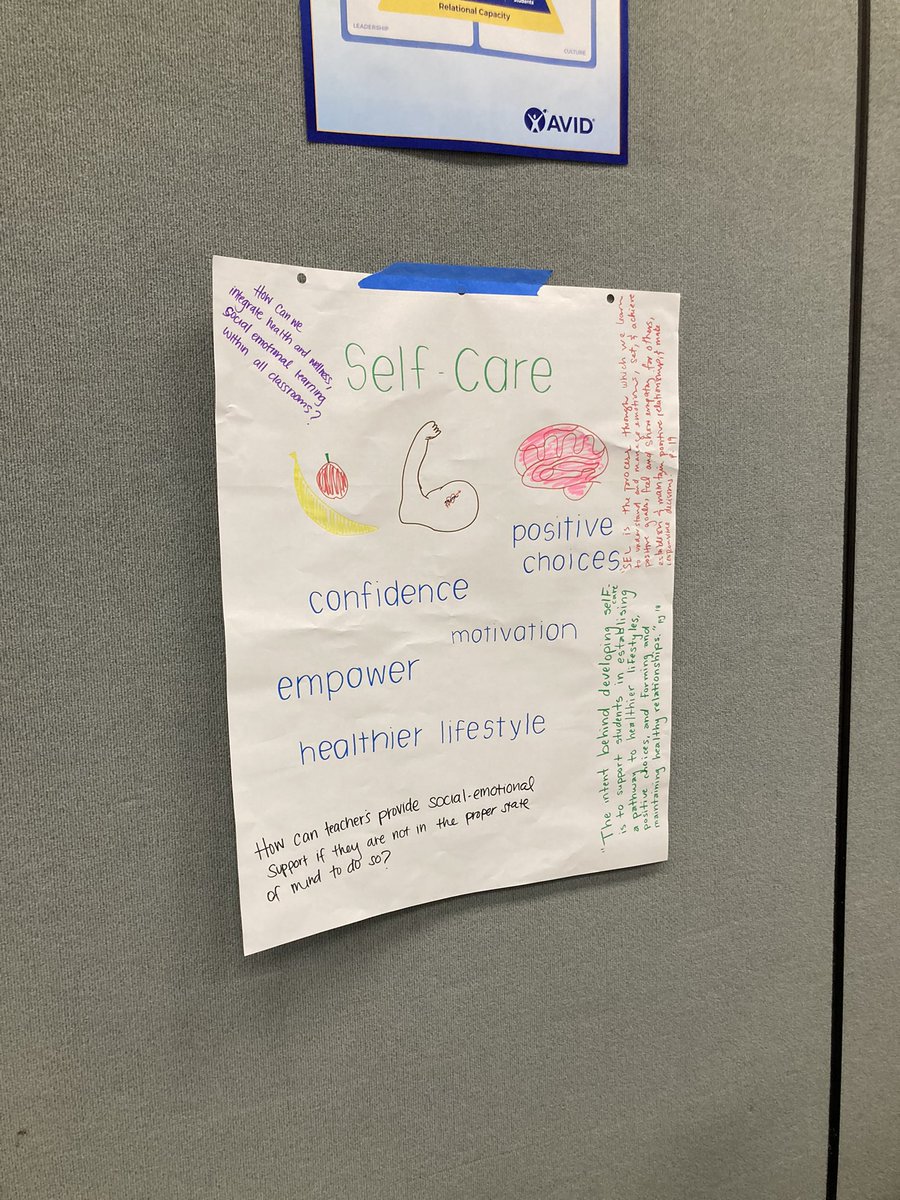 Students
Relational Capacity
LEADERSHIP
CULTURE
AVID
How can we
integrate health and wellness,
social emotional learning
within all classrooms?
Self-Care
positive
choices
confidence
motivation
empower
healthier lifestyle
How can teacher's provide social-emotional
support if they are not in the proper state
of mind to do so?
"SEL is the process through which we learn
to understand and manage emotions, set, & achieve
positive goals, feel and show empathy for others,
establish & maintain positive relationships, & make
decisions. p. 19
"The intent behind developing self-care
is to support students in establising
a pathway to healthier lifestyles,
positive choices, and forming and
maintaining healthy relationships." pg 18